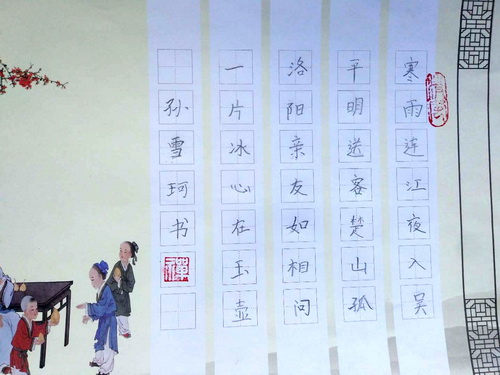 寒雨连江夜入吴
平明送客楚山孤
洛阳亲友如相问
一片冰心在玉壶
孙雪珂书
禅